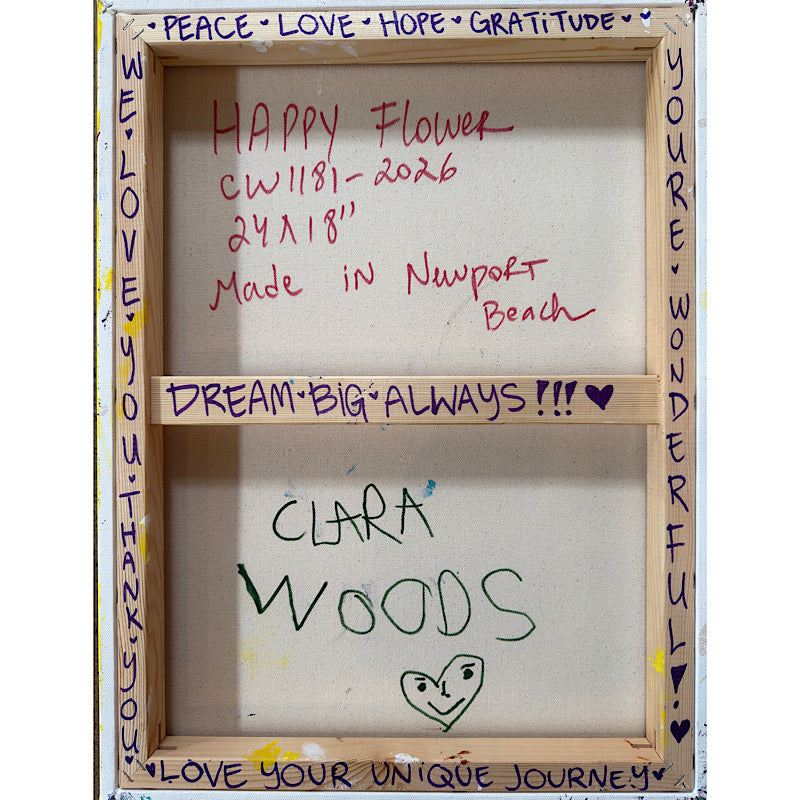 PEACE • LOVE • HOPE • GRATiTUDE
WE • LOVE • YOU • THANK • YOU
HAPPY Flower
CW1181-2026
24 X 18"
Made iN Newport
Beach
DREAM • BiG • ALWAYS!!! ♥
CLARA
WOODS
YOURE • WONDERFUL! • ♥
LOVE YOUR UNiQUE JOURNEY